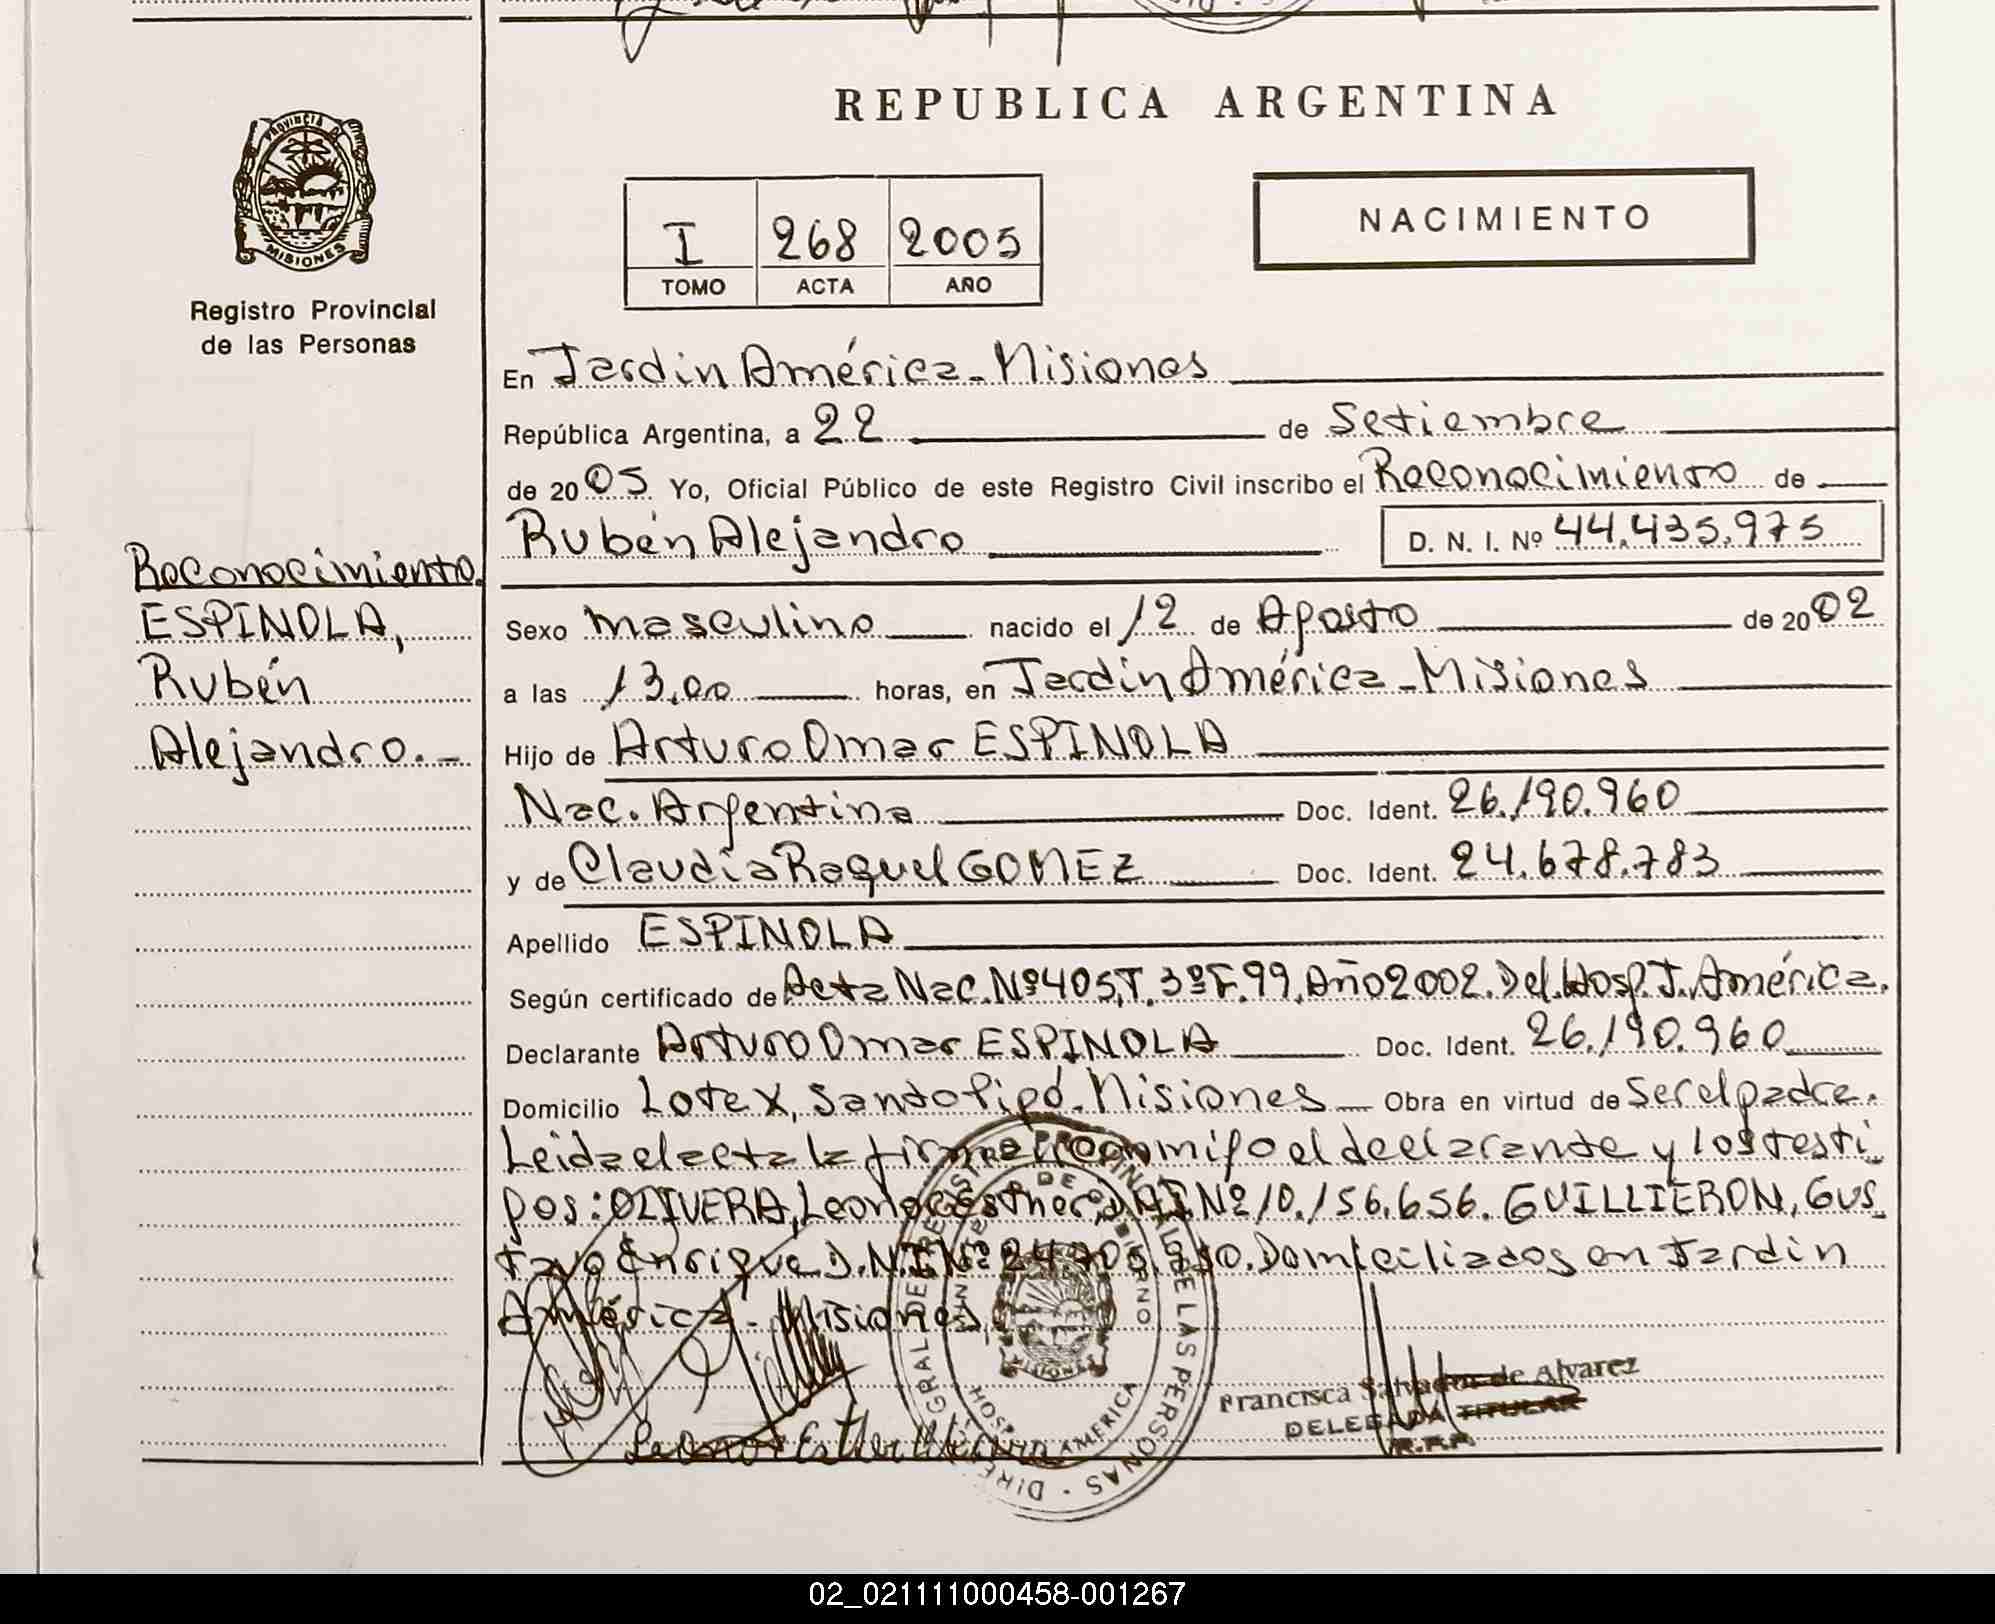 REPUBLICA ARGENTINA
PROVINCIA DE
MISIONES
Registro Provincial
de las Personas
I 268 2005
TOMO ACTA AÑO
NACIMIENTO
En Jardin América - Misiones
República Argentina, a 22 de Setiembre
de 2005 Yo, Oficial Público de este Registro Civil inscribo el Reconocimiento de
Rubén Alejandro D. N. I. Nº 44.435.975
Reconocimiento.
ESPINOLA,
Rubén
Alejandro.-
Sexo masculino nacido el 12 de Agosto de 2002
a las 13,00 horas, en Jardín América - Misiones
Hijo de Arturo Omar ESPINOLA
Nac. Argentina Doc. Ident. 26.190.960
y de Claudia Raquel GOMEZ Doc. Ident. 24.678.783
Apellido ESPINOLA
Según certificado de Acta Nac. Nº 405, T. 3º F. 99, Año 2002. Del. Hosp. J. América.
Declarante Arturo Omar ESPINOLA Doc. Ident. 26.190.960
Domicilio Lote X, Santo Pipó. Misiones Obra en virtud de Ser el padre.
Leida el acta la firma con migo el declarante y los testi-
gos: OLIVERA, Leonor Esther D.N.I Nº 10.156.656. GUILLIERON, Gus-
tavo Enrique D.N.I Nº Domiciliados en Jardin
América - Misiones
Leonor Esther Olivera
Francisca Salvador de Alvarez
DELEGADA TITULAR
R.P.P.
DE LAS PERSONAS
DE GOBIERNO
HOSP. AMERICA
MISIONES
02_021111000458-001267